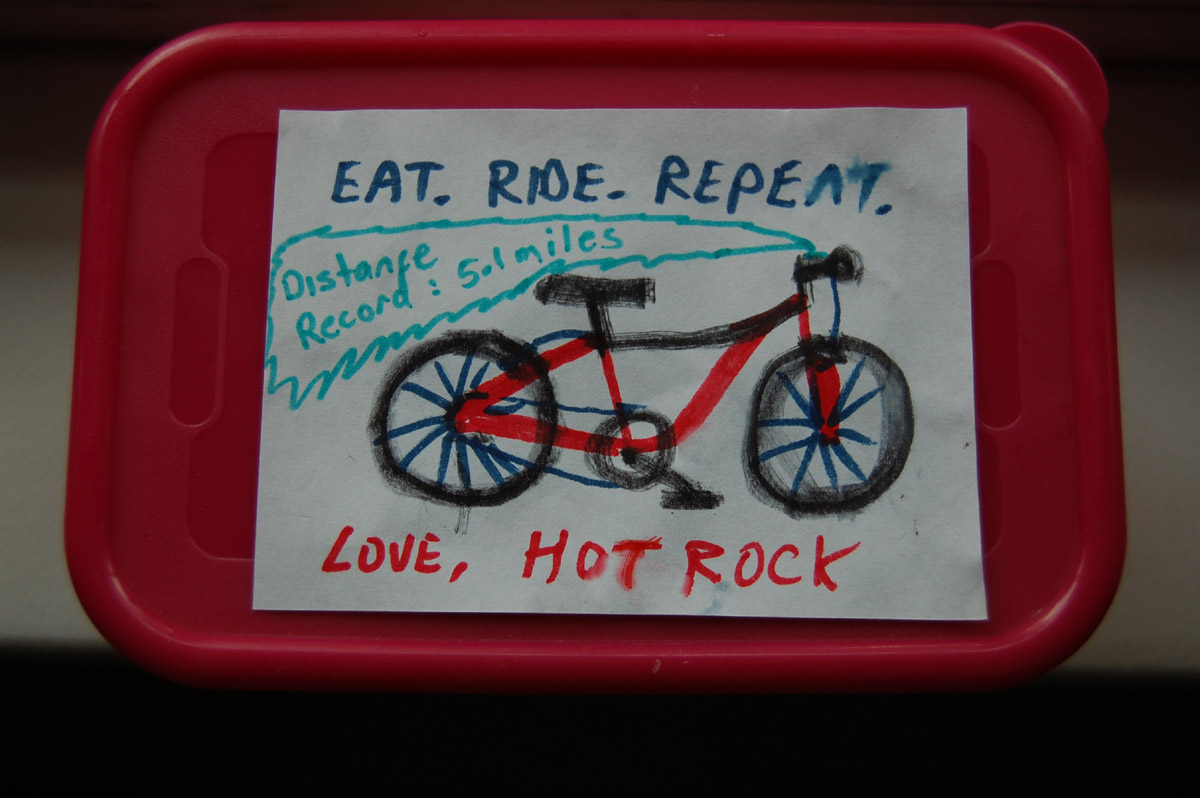 EAT. RIDE. REPEAT.
Distance
Record: 5.1 miles
LOVE, HOT ROCK